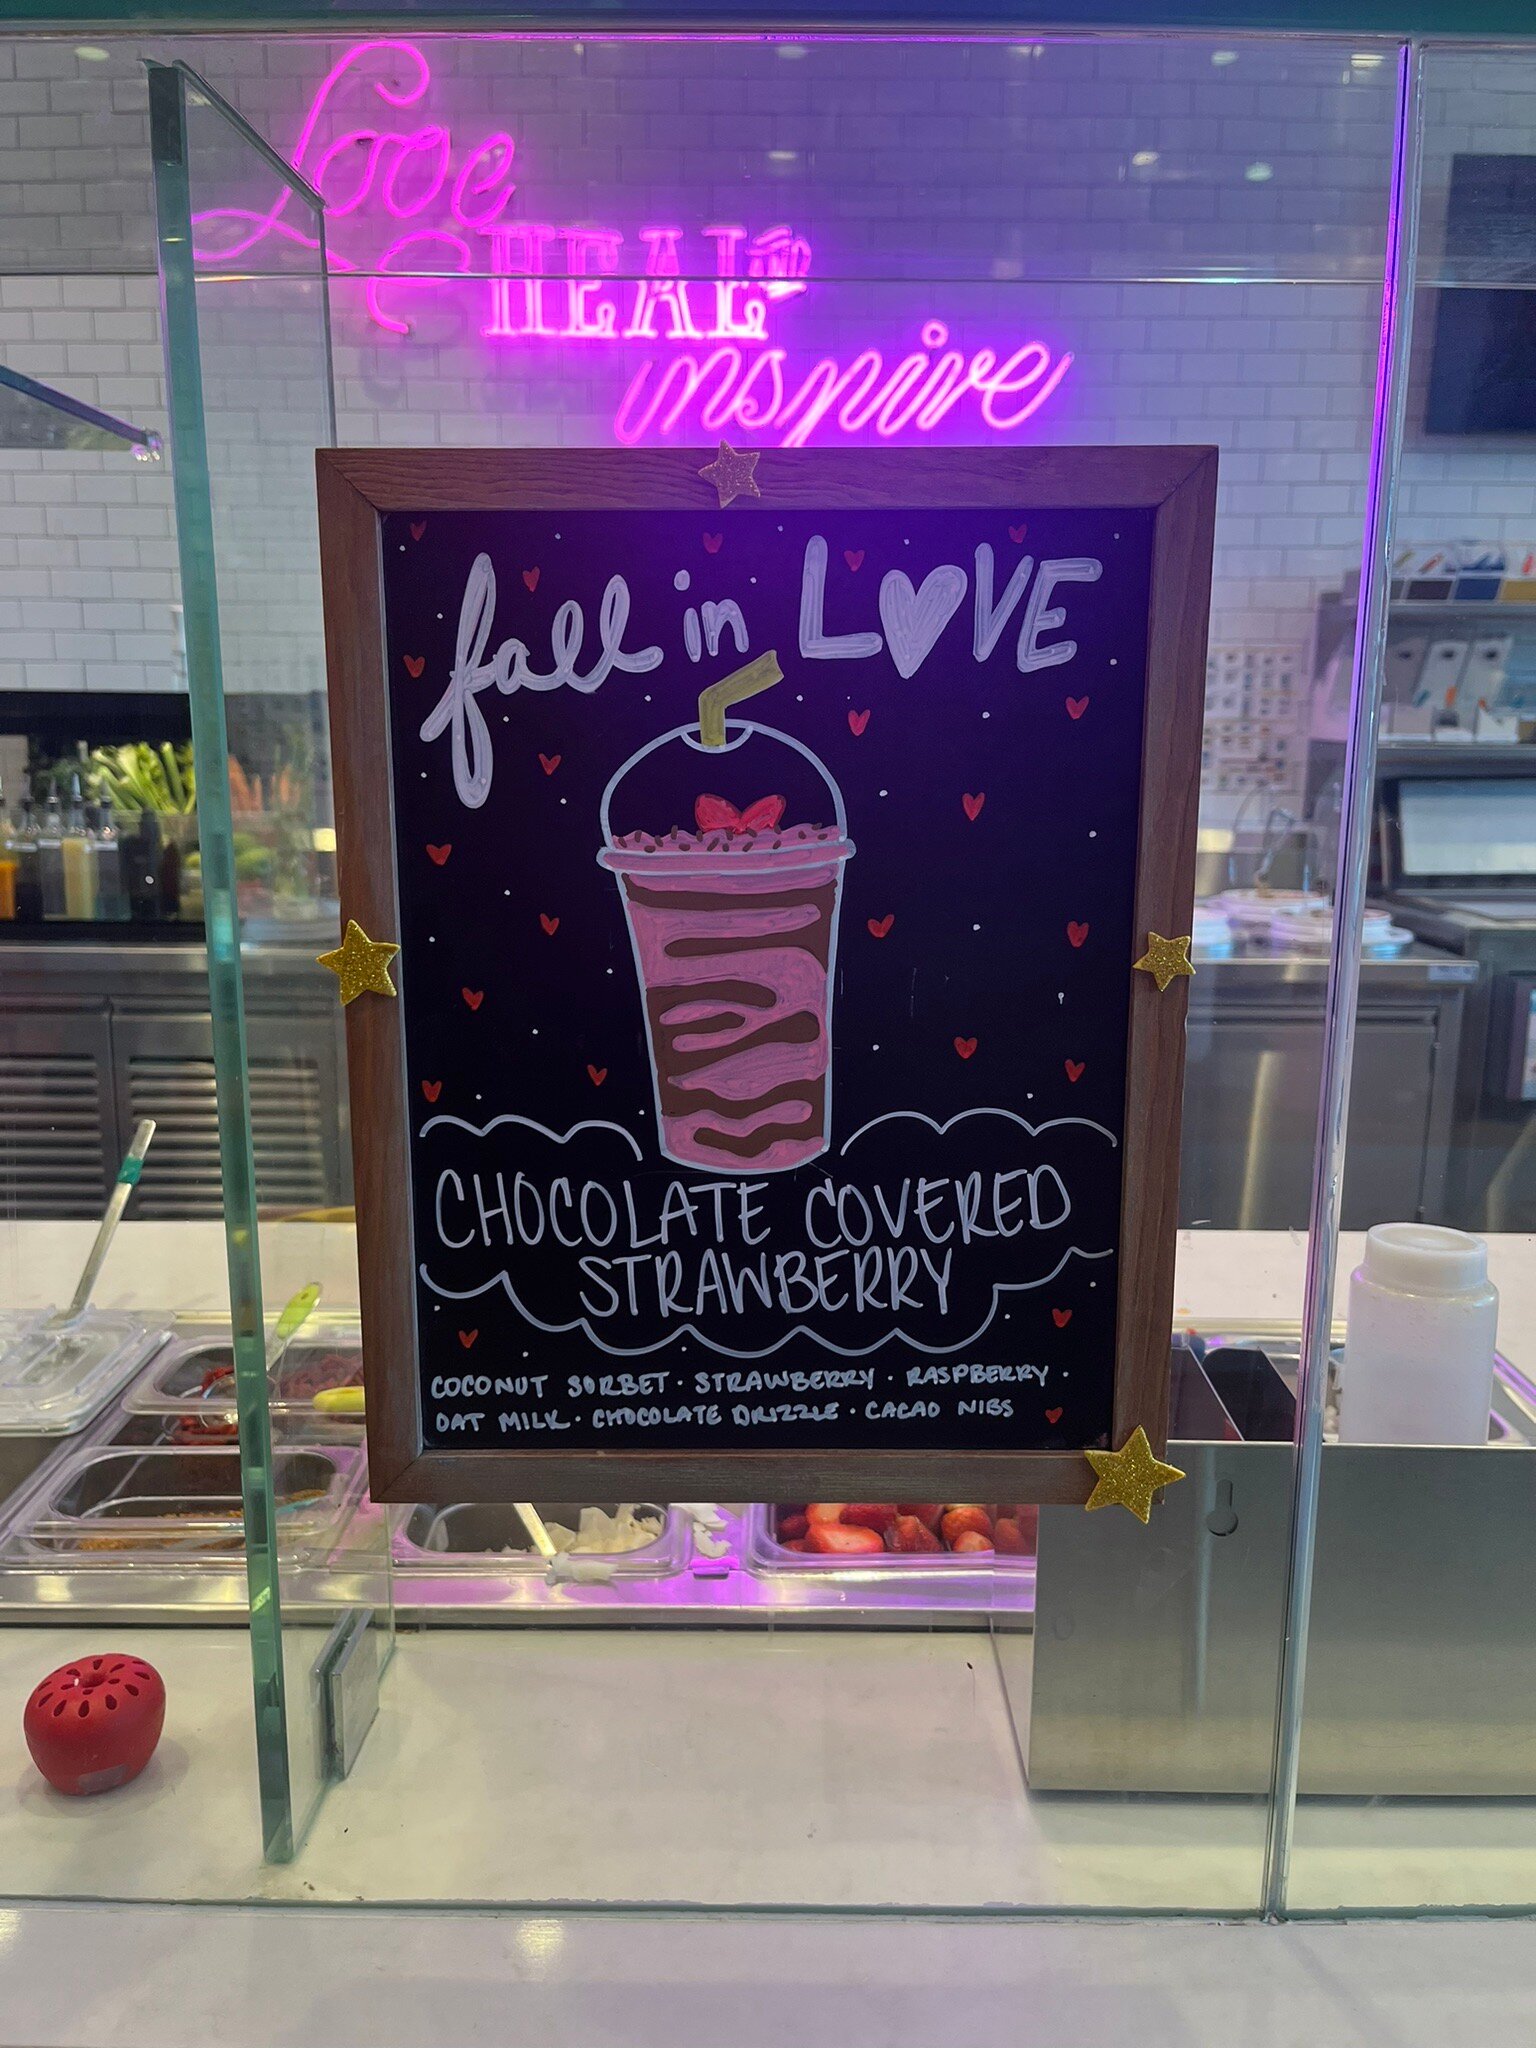 Love
& HEAL AND
inspire
fall in LOVE
CHOCOLATE COVERED
STRAWBERRY
COCONUT SORBET · STRAWBERRY · RASPBERRY ·
OAT MILK · CHOCOLATE DRIZZLE · CACAO NIBS